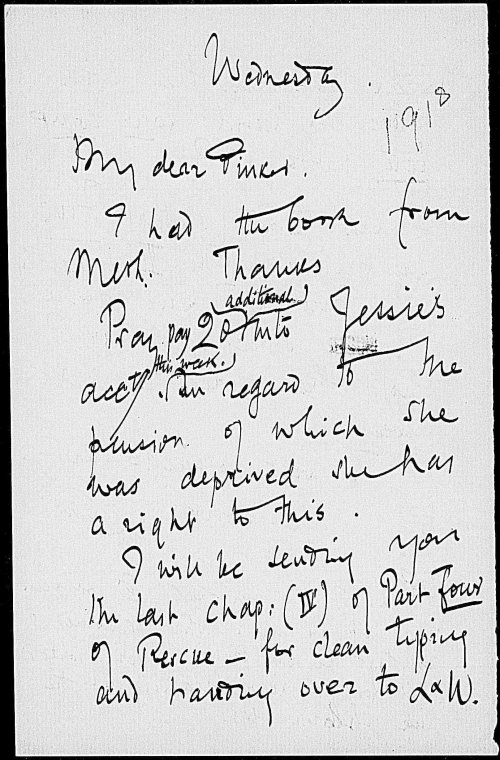 Wednesday.
1918
My dear Pinker.
I had the book from
Meth. Thanks
additional
Pray pay 20 into Jessie's
this week.
acct. In regard to the
pension of which she
was deprived she has
a right to this.
I will be sending you
the last chap: (IV) of Part Four
of Rescue – for clean typing
and handing over to L&W.